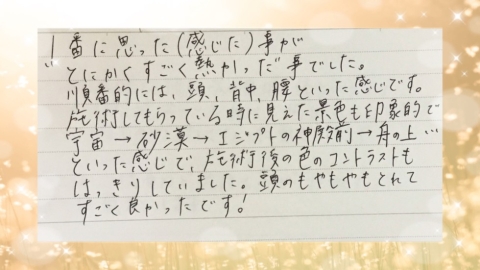 1番に思った(感じた)事が
とにかくすごく熱かった事でした。
順番的には、頭、背中、腰といった感じです。
施術してもらっている時に見えた景色も印象的で
宇宙→砂漠→エジプトの神殿前→舟の上…
といった感じで、施術後の色のコントラストも
はっきりしていました。頭のもやもやもとれて
すごく良かったです!